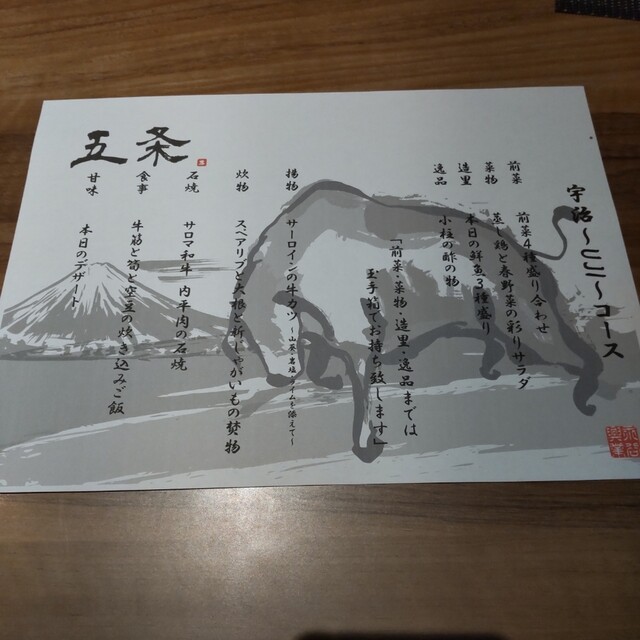 宇治〜UJI〜コース
前菜 前菜4種盛り合わせ
菜物 蒸し鶏と春野菜の彩りサラダ
造里 本日の鮮魚3種盛り
逸品 小柱の酢の物
「前菜・菜物・造里・逸品までは
玉手箱でお持ち致します」
揚物 サーロインの牛カツ
炊物 スペアリブと大根と新じゃがいもの炊物
石焼 サロマ和牛 内平肉の石焼
食事 牛筋と筍と空豆の炊き込みご飯
甘味 本日のデザート
五条